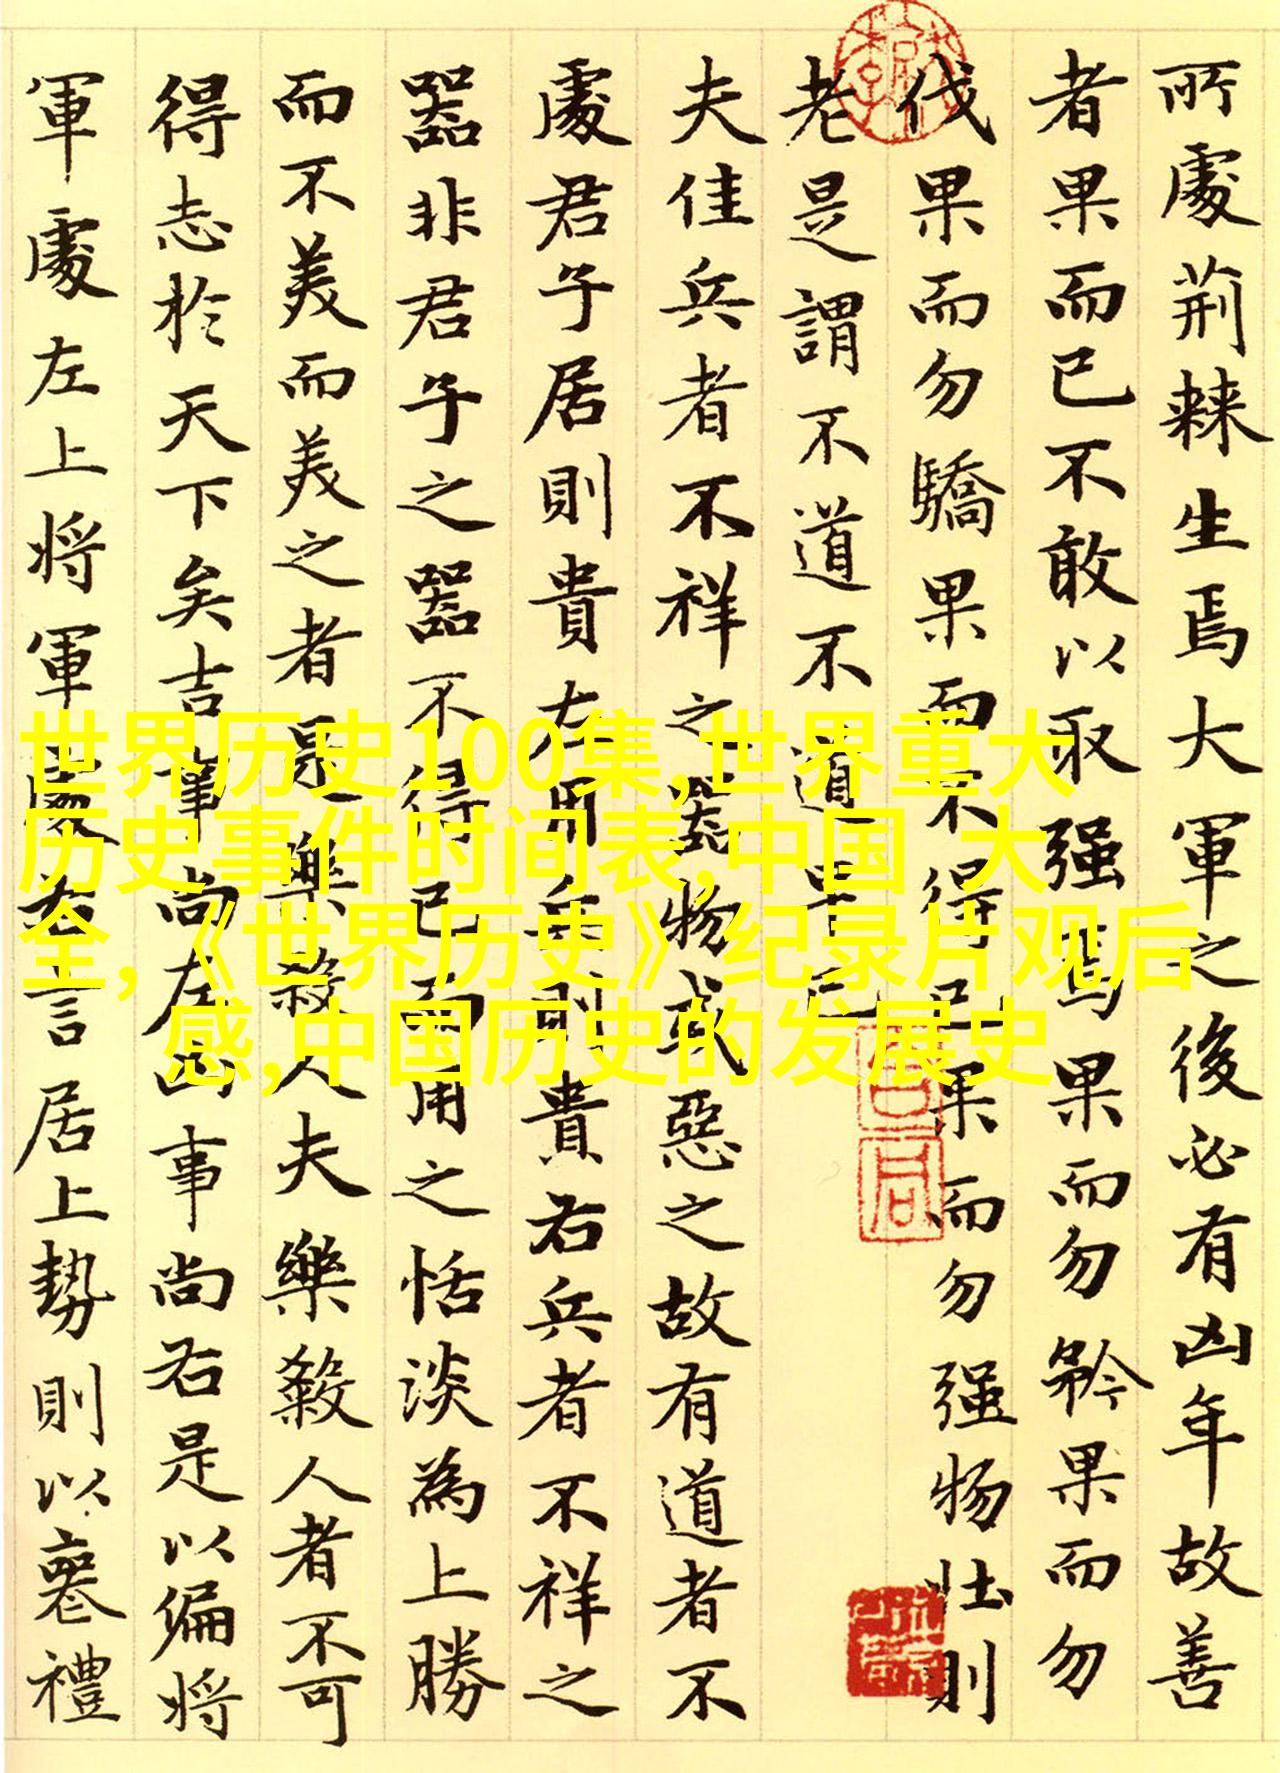 所處荆棘生焉大軍之後必有凶年故善
者果而已不敢以取强焉果而勿矜果而勿
伐果而勿驕果而不得已果而勿强物壮則
老是謂不道不道早已
夫佳兵者不祥之器物或惡之故有道者不
處君子居則貴左用兵則貴右兵者不祥之
器非君子之器不得已而用之恬淡為上勝
而不美而美之者是樂殺人夫樂殺人者不可
得志於天下矣吉事尚左凶事尚右是以偏将
軍處左上将軍處右言居上勢則以喪禮
世界历史100集,世界重大
历史事件时间表,中国 大
全,《世界历史》纪录片观后
感,中国历史的发展史